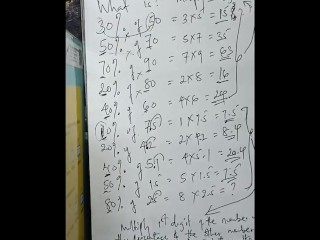 What is?
30% of 50 = 3x5 = 15
50% of 70 = 5x7 = 35
70% of 90 = 7x9 = 63
20% of 80 = 2x8 = 16
40% of 60 = 4x6 = 24
10% of 75 = 1x7.5 = 7.5
20% of 42 = 2x4.2 = 8.4
40% of 51 = 4x5.1 = 20.4
50% of 15 = 5x1.5 = 7.5
80% of 25 = 8x2.5 = ?
Multiply 1st digit of the number
the percentage to the other number